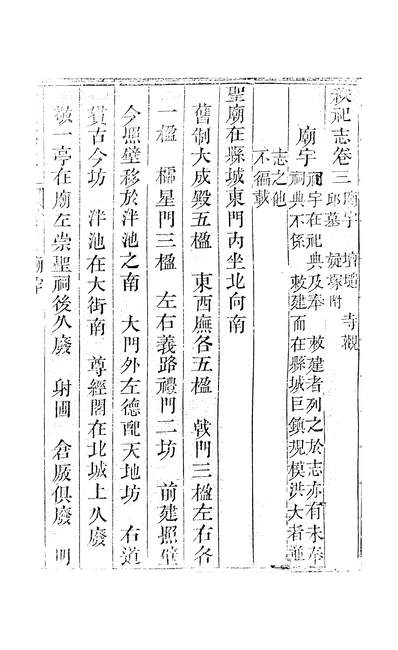 秩祀志卷三 廟宇 壇壝 寺觀
邱墓 疑塚附
廟宇 祠宇在祀典及奉 敕建者列之於志亦有未奉
祠典不係 敕建而在縣城巨鎮規模洪大者並
志之他
不徧載
聖廟在縣城東門內坐北向南
舊制大成殿五楹 東西廡各五楹 戟門三楹左右各
一楹 櫺星門三楹 左右義路禮門二坊 前建照壁
今照壁移於泮池之南 大門外左德配天地坊 右道
貫古今坊 泮池在大街南 尊經閣在北城上久廢
敬一亭在廟左崇聖祠後久廢 射圃 倉厫俱廢 明